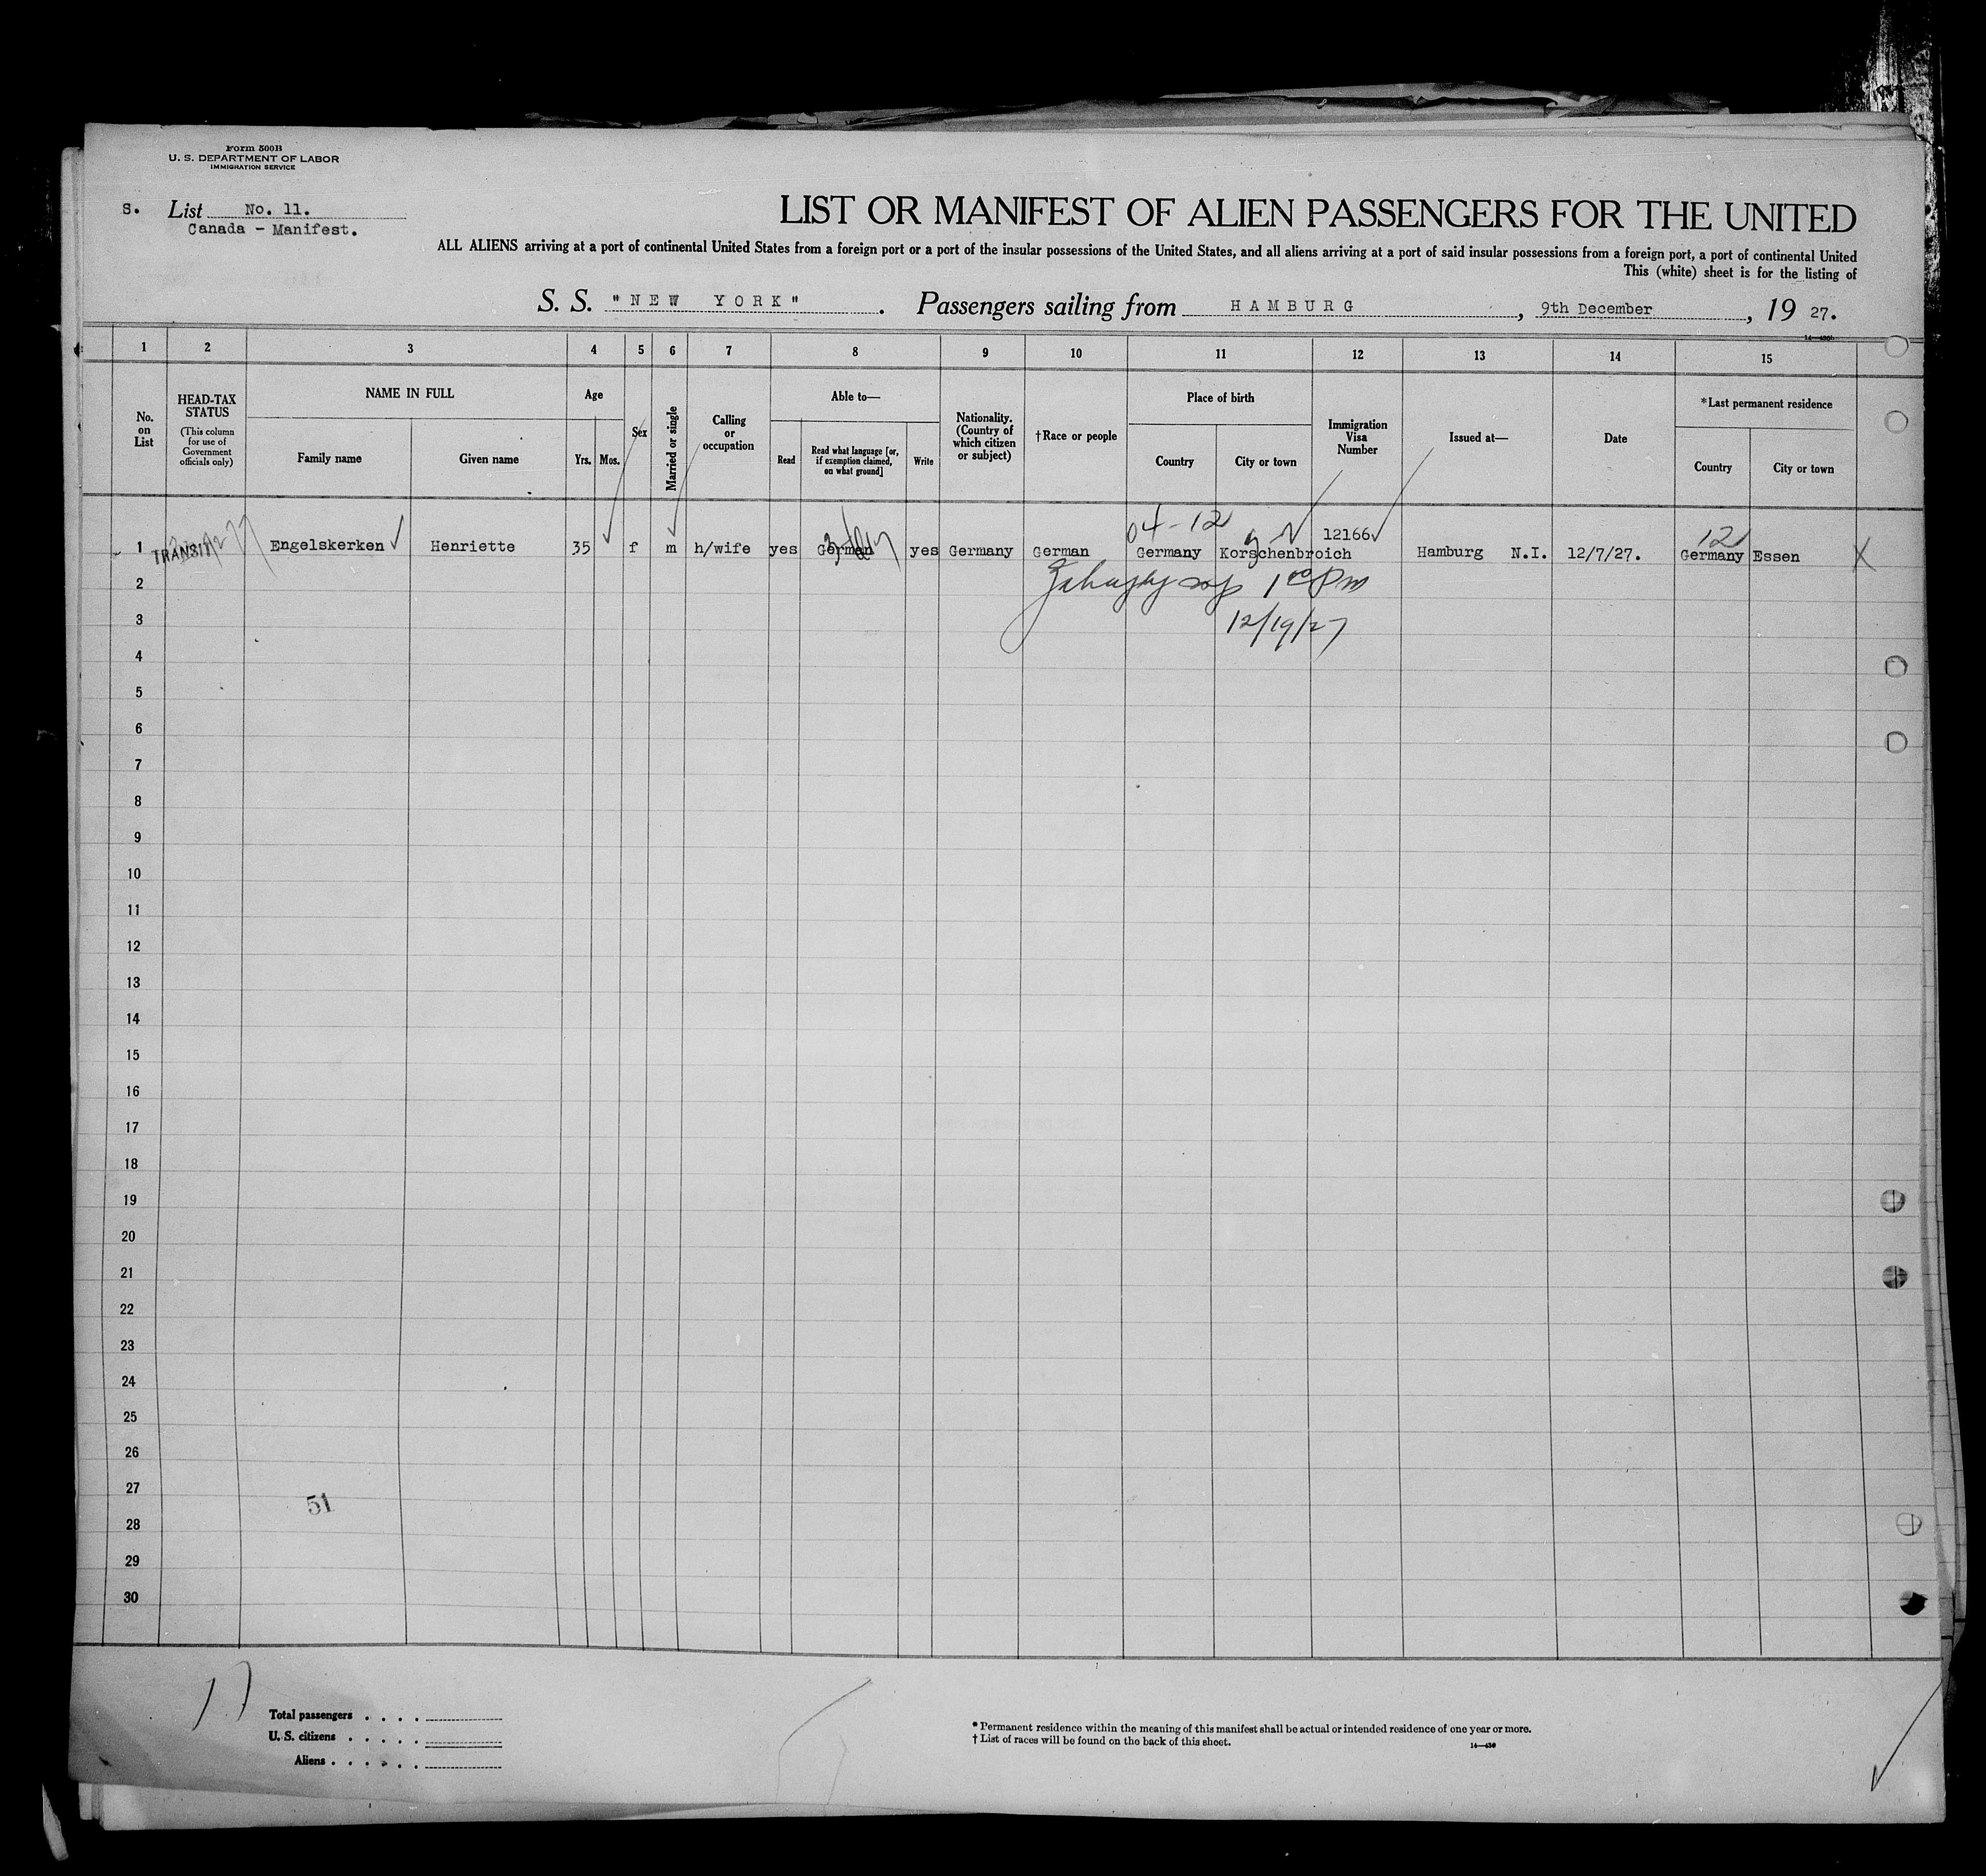 Form 500B
U. S. DEPARTMENT OF LABOR
IMMIGRATION SERVICE
S. List No. 11.
Canada - Manifest.
LIST OR MANIFEST OF ALIEN PASSENGERS FOR THE UNITED
ALL ALIENS arriving at a port of continental United States from a foreign port or a port of the insular possessions of the United States, and all aliens arriving at a port of said insular possessions from a foreign port, a port of continental United
This (white) sheet is for the listing of
S. S. "NEW YORK". Passengers sailing from HAMBURG, 9th December, 1927.
1 2 3 4 5 6 7 8 9 10 11 12 13 14 15
No. on List
HEAD-TAX STATUS
(This column for use of Government officials only)
NAME IN FULL
Family name
Given name
Age
Yrs. Mos.
Sex
Married or single
Calling or occupation
Able to—
Read
Read what language [or, if exemption claimed, on what ground]
Write
Nationality. (Country of which citizen or subject)
†Race or people
Place of birth
Country
City or town
Immigration Visa Number
Issued at—
Date
*Last permanent residence
Country
City or town
04-12
12
1 TRANSIT Engelskerken Henriette 35 f m h/wife yes German yes Germany German Germany Korschenbroich 12166 Hamburg N.I. 12/7/27. Germany Essen X
2 1 00 Pm
3 12/19/27
4
5
6
7
8
9
10
11
12
13
14
15
16
17
18
19
20
21
22
23
24
25
26
27
51
28
29
30
Total passengers . . . .
U. S. citizens . . . . .
Aliens . . . . . .
* Permanent residence within the meaning of this manifest shall be actual or intended residence of one year or more.
† List of races will be found on the back of this sheet.
14—430